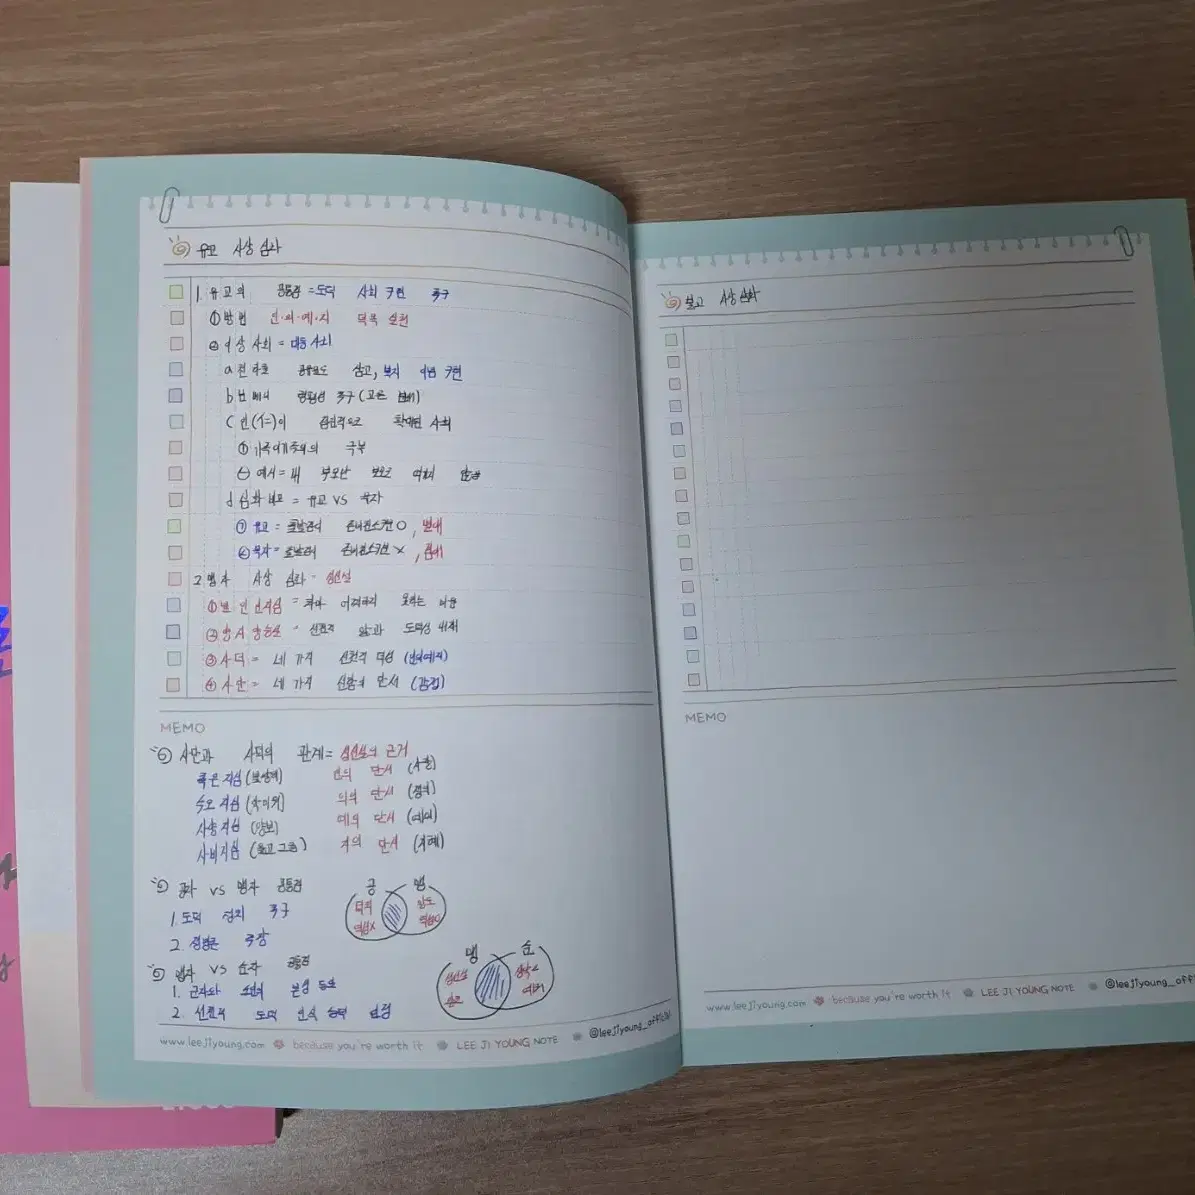 유교 사상 심화
1. 유교의 공통점 = 도덕 사회 구현 추구
① 방법 인·의·예·지 덕목 실천
② 이상사회 = 대동사회
a 전락으로 공동으로 삼고, 복지 이념 구현
b 분배의 형평성 추구 (고른 분배)
c 인(仁)이 점진적으로 확대된 사회
① 가족이기주의의 극복
② 예시 = 내 부모만 부모로 여기지 않음
d 심화비교 = 유교 vs 묵자
① 유교 = 존비친소구분 O, 별애
② 묵자 = 존비친소구분 X, 겸애
2 맹자 사상 심화 - 성선설
① 불인인지심 = 차마 어려하지 못하는 마음
② 양지 양능설 - 선천적 앎과 도덕성 내재
③ 사덕 = 네 가지 선천적 덕성 (인의예지)
④ 사단 = 네 가지 선함의 단서 (감정)
MEMO
⑤ 사단과 사덕의 관계 = 성선설의 근거
측은지심 (불쌍해) 인의 단서 (사랑)
수오지심 의의 단서 (정의)
사양지심 (양보) 예의 단서 (예의)
시비지심 (옳고 그름) 지의 단서 (지혜)
공자 vs 맹자 공통점
1. 도덕 정치 추구
2. 정명론 주장
공 맹
덕치 왕도
역성X 역성O
맹자 vs 순자 공통점
1. 군자와 소인의 본성 동일
2. 선천적 도덕 인식 능력 인정
맹 순
성선설 성악설
www.leejiyoung.com because you're worth it LEE JI YOUNG NOTE @leejiyoung_offici
불교 사상 심화
MEMO
www.leejiyoung.com because you're worth it LEE JI YOUNG NOTE @leejiyoung_off